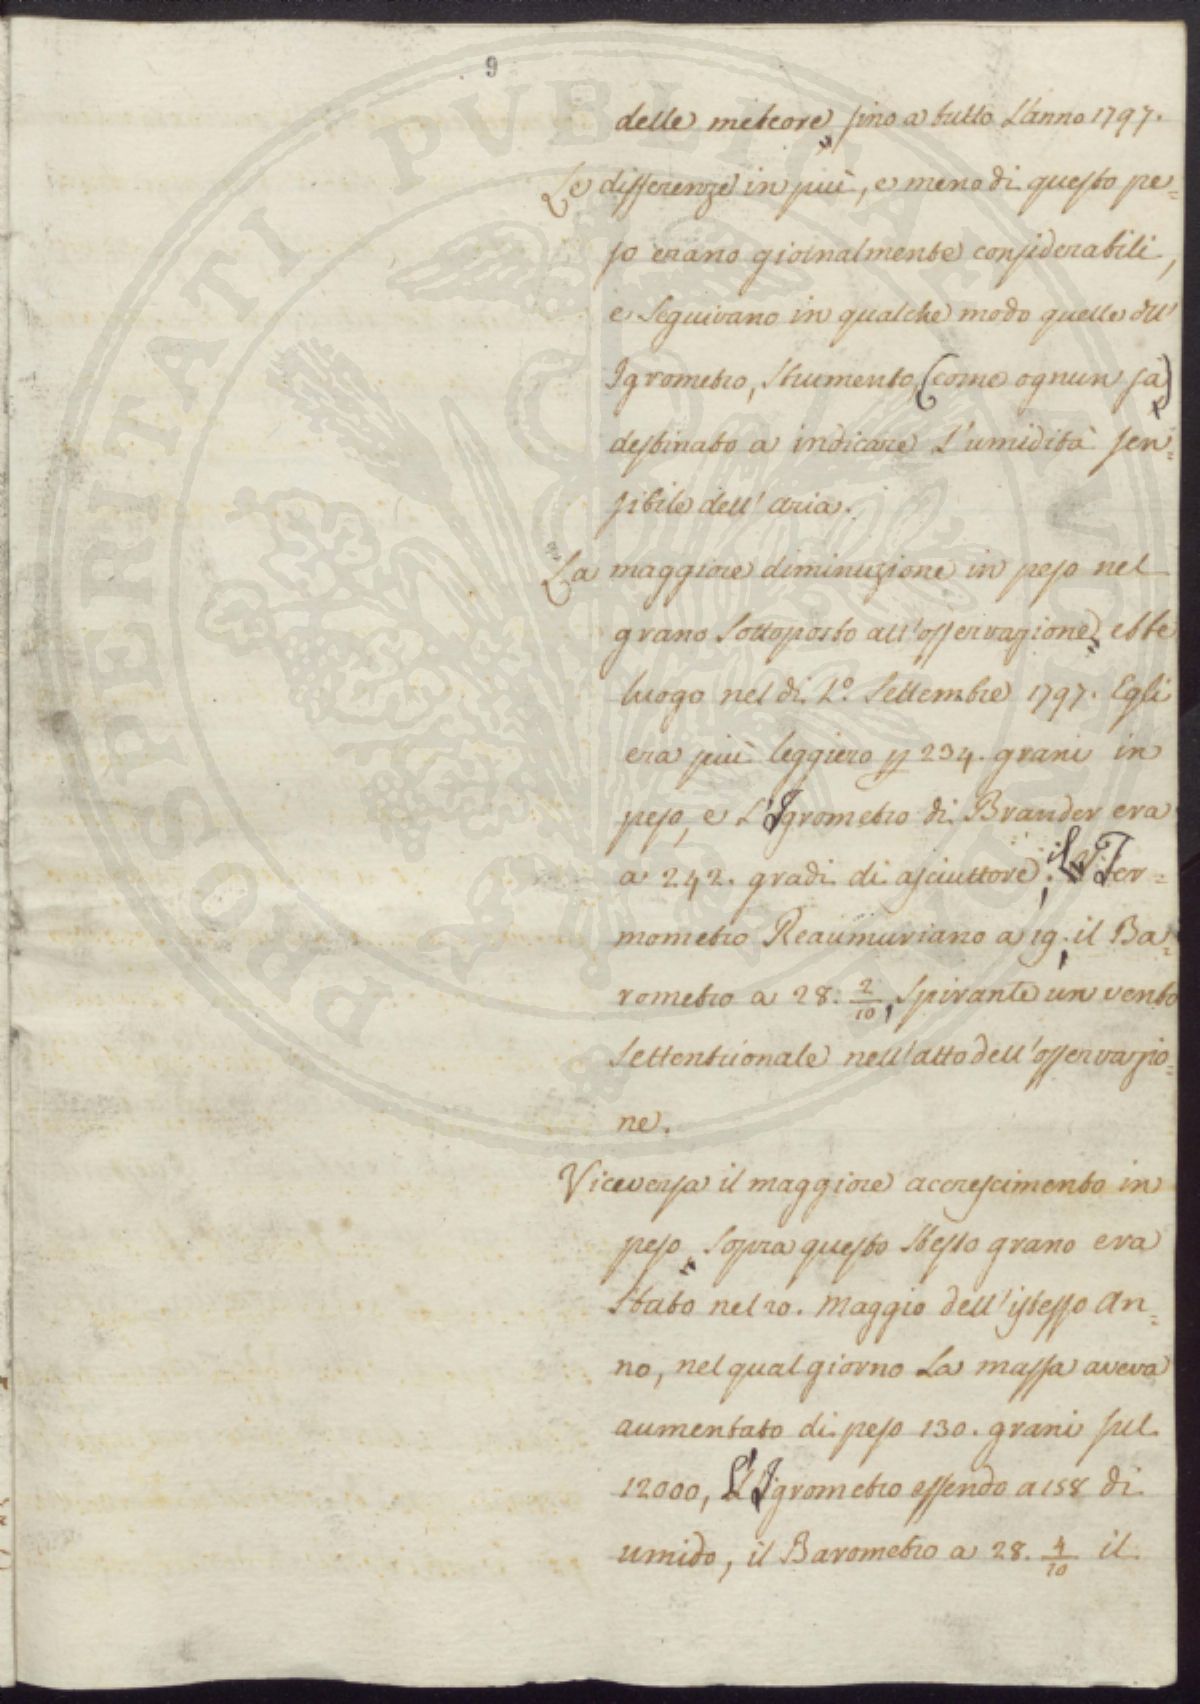 9
delle meteore, sino a tutto L'anno 1797.
Le differenze in più, e meno di questo pe=
so erano giornalmente considerabili,
e seguivano in qualche modo quelle dell'
Igrometro, strumento, (come ognun sa)
destinato a indicare L'umidità sen=
sibile dell' aria.
La maggiore diminuzione in peso nel
grano sottoposto all'osservazione, ebbe
luogo nel di 1.º Settembre 1797. Egli
era più leggiero p 234. grani in
peso, e L'Igrometro di Brander era
a 242. gradi di asciuttore; il Ter=
mometro Reaumuriano a 19, il Ba=
rometro a 28. 2/10, Spirante un vento
Settentrionale nell'atto dell'osservazio=
ne.
Viceversa il maggiore accrescimento in
peso, sopra questo stesso grano era
stato nel 20. Maggio dell'istesso An=
no, nel qual giorno La massa aveva
aumentato di peso 130. grani sul
12000, L'Igrometro essendo a 158 di
umido, il Barometro a 28. 4/10 il
PROSPERITATI PVBLICAE AVGENDAE